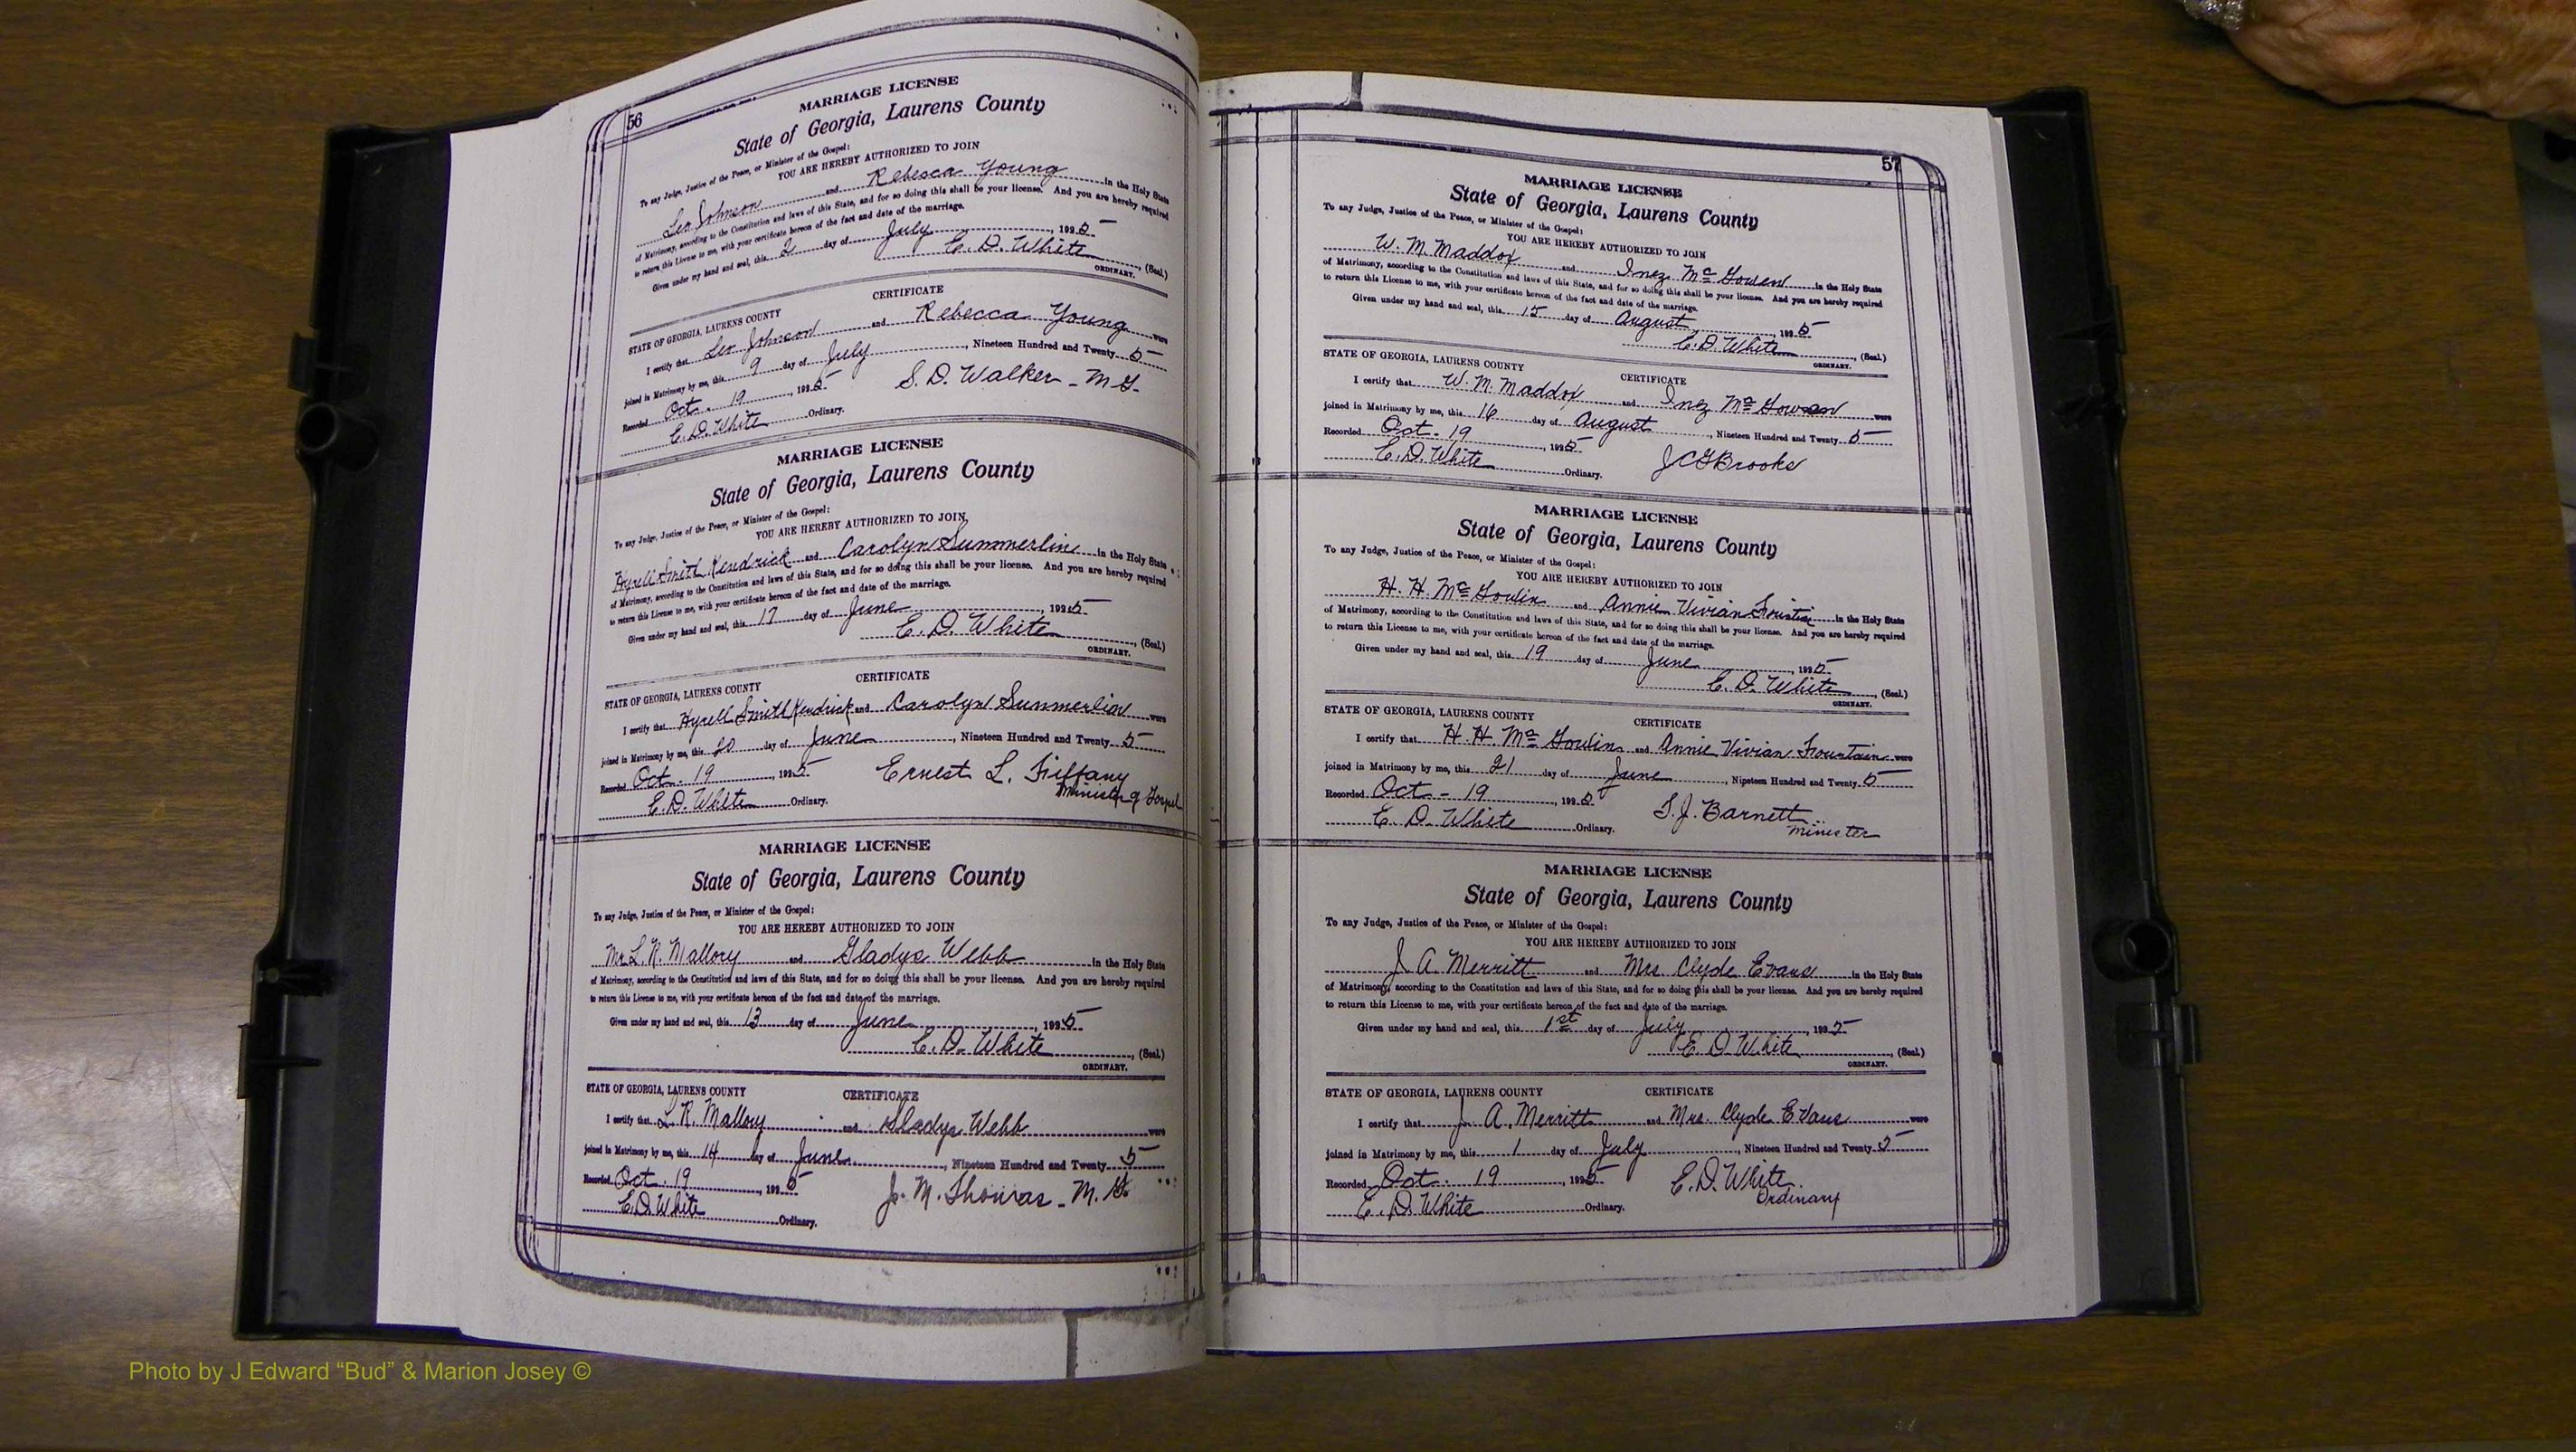 56
MARRIAGE LICENSE
State of Georgia, Laurens County
To any Judge, Justice of the Peace, or Minister of the Gospel:
YOU ARE HEREBY AUTHORIZED TO JOIN
Leo Johnson and Rebecca Young in the Holy State
of Matrimony, according to the Constitution and laws of this State, and for so doing this shall be your license. And you are hereby required
to return this License to me, with your certificate hereon of the fact and date of the marriage.
Given under my hand and seal, this 2 day of July, 1925
E. D. White, (Seal.)
ORDINARY.
CERTIFICATE
STATE OF GEORGIA, LAURENS COUNTY
I certify that Leo Johnson and Rebecca Young were
joined in Matrimony by me, this 9 day of July, Nineteen Hundred and Twenty 5
Recorded Oct. 19, 1925 S. D. Walker - M G-
E. D. White Ordinary.
MARRIAGE LICENSE
State of Georgia, Laurens County
To any Judge, Justice of the Peace, or Minister of the Gospel:
YOU ARE HEREBY AUTHORIZED TO JOIN
Hyrell Smith Kendrick and Carolyn Summerlin in the Holy State
of Matrimony, according to the Constitution and laws of this State, and for so doing this shall be your license. And you are hereby required
to return this License to me, with your certificate hereon of the fact and date of the marriage.
Given under my hand and seal, this 17 day of June, 1925
E. D. White, (Seal.)
ORDINARY.
CERTIFICATE
STATE OF GEORGIA, LAURENS COUNTY
I certify that Hyrell Smith Kendrick and Carolyn Summerlin were
joined in Matrimony by me, this 20 day of June, Nineteen Hundred and Twenty 5
Recorded Oct. 19, 1925 Ernest L. Tiffany
Minister of Gospel
E. D. White Ordinary.
MARRIAGE LICENSE
State of Georgia, Laurens County
To any Judge, Justice of the Peace, or Minister of the Gospel:
YOU ARE HEREBY AUTHORIZED TO JOIN
Mr L. R. Mallory and Gladys Webb in the Holy State
of Matrimony, according to the Constitution and laws of this State, and for so doing this shall be your license. And you are hereby required
to return this License to me, with your certificate hereon of the fact and date of the marriage.
Given under my hand and seal, this 13 day of June, 1925
E. D. White, (Seal.)
ORDINARY.
STATE OF GEORGIA, LAURENS COUNTY CERTIFICATE
I certify that L. R. Mallory and Gladys Webb were
joined in Matrimony by me, this 14 day of June, Nineteen Hundred and Twenty 5
Recorded Oct. 19, 1925 J. M. Thomas - M. G.
E. D. White Ordinary.
57
MARRIAGE LICENSE
State of Georgia, Laurens County
To any Judge, Justice of the Peace, or Minister of the Gospel:
YOU ARE HEREBY AUTHORIZED TO JOIN
W. M. Maddox and Inez McGowen in the Holy State
of Matrimony, according to the Constitution and laws of this State, and for so doing this shall be your license. And you are hereby required
to return this License to me, with your certificate hereon of the fact and date of the marriage.
Given under my hand and seal, this 15 day of August, 1925
E. D. White, (Seal.)
ORDINARY.
STATE OF GEORGIA, LAURENS COUNTY CERTIFICATE
I certify that W. M. Maddox and Inez McGowen were
joined in Matrimony by me, this 16 day of August, Nineteen Hundred and Twenty 5
Recorded Oct. 19, 1925 J C G Brooks
E. D. White Ordinary.
MARRIAGE LICENSE
State of Georgia, Laurens County
To any Judge, Justice of the Peace, or Minister of the Gospel:
YOU ARE HEREBY AUTHORIZED TO JOIN
H. H. McGowin and Annie Vivian in the Holy State
of Matrimony, according to the Constitution and laws of this State, and for so doing this shall be your license. And you are hereby required
to return this License to me, with your certificate hereon of the fact and date of the marriage.
Given under my hand and seal, this 19 day of June, 1925
E. D. White, (Seal.)
ORDINARY.
STATE OF GEORGIA, LAURENS COUNTY CERTIFICATE
I certify that H. H. and Annie Vivian Fountain were
joined in Matrimony by me, this 21 day of June, Nineteen Hundred and Twenty 5
Recorded Oct - 19, 1925 T. J. Barnett
minister
E. D. White Ordinary.
MARRIAGE LICENSE
State of Georgia, Laurens County
To any Judge, Justice of the Peace, or Minister of the Gospel:
YOU ARE HEREBY AUTHORIZED TO JOIN
J. A. Merritt and Mrs Clyde Evans in the Holy State
of Matrimony, according to the Constitution and laws of this State, and for so doing this shall be your license. And you are hereby required
to return this License to me, with your certificate hereon of the fact and date of the marriage.
Given under my hand and seal, this 1st day of July, 1925
E. D. White, (Seal.)
ORDINARY.
STATE OF GEORGIA, LAURENS COUNTY CERTIFICATE
I certify that J. A. Merritt and Mrs. Clyde Evans were
joined in Matrimony by me, this 1 day of July, Nineteen Hundred and Twenty 5
Recorded Oct. 19, 1925 E. D. White
Ordinary
E. D. White Ordinary.
Photo by J Edward “Bud” & Marion Josey ©